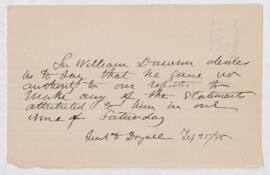 Sir William Dawson desires
us to say that he gave no
authority to our reporter to
make any of the statements
attributed to him in our
issue of Saturday
Feb 25/85